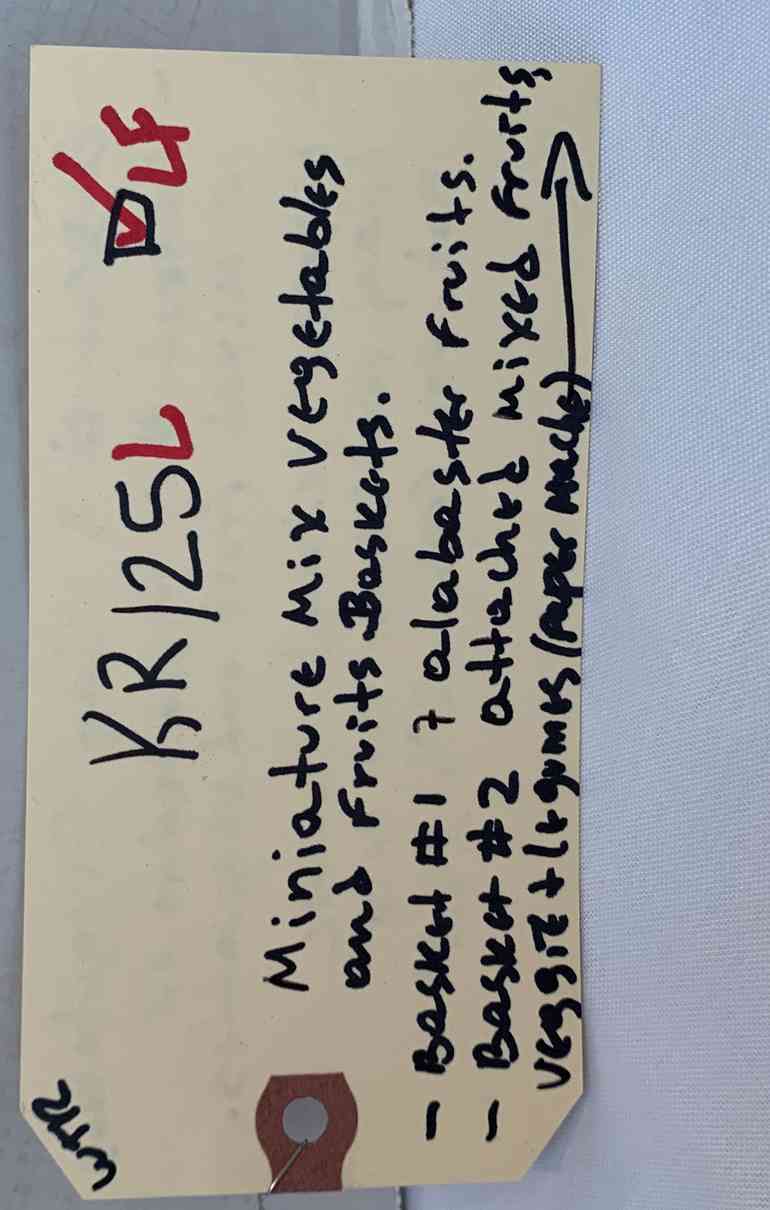 WTR
KR125L ☑ LF
Miniature Mix Vegetables
and Fruits Baskets.
- Basket #1 7 alabaster Fruits.
- Basket #2 attached Mixed Fruits,
Veggie + legumes (paper mache) →